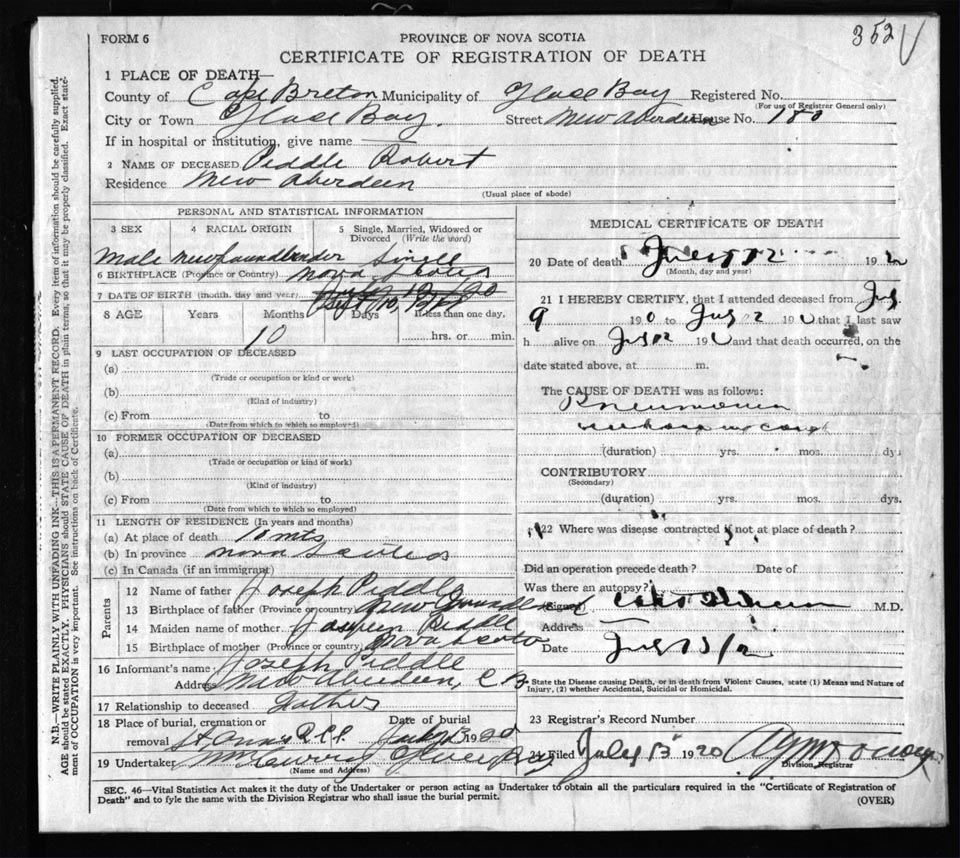 FORM 6
PROVINCE OF NOVA SCOTIA
352
CERTIFICATE OF REGISTRATION OF DEATH
1 PLACE OF DEATH—
County of Cape Breton Municipality of Glace Bay Registered No.
(For use of Registrar General only)
City or Town Glace Bay. Street New Aberdeen House No. 180
If in hospital or institution, give name
2 NAME OF DECEASED Piddle Robert
Residence New Aberdeen
(Usual place of abode)
PERSONAL AND STATISTICAL INFORMATION
3 SEX 4 RACIAL ORIGIN 5 Single, Married, Widowed or Divorced (Write the word)
Male Newfoundlander Single
6 BIRTHPLACE (Province or Country) Nova Scotia
7 DATE OF BIRTH (month, day and year)
8 AGE Years Months Days If less than one day,
10 hrs. or min.
9 LAST OCCUPATION OF DECEASED
(a)
(Trade or occupation or kind or work)
(b)
(Kind of industry)
(c) From to
(Date from which to which so employed)
10 FORMER OCCUPATION OF DECEASED
(a)
(Trade or occupation or kind of work)
(b)
(Kind of industry)
(c) From to
(Date from which to which so employed)
11 LENGTH OF RESIDENCE (In years and months)
(a) At place of death 10 mts
(b) In province Nova Scotia
(c) In Canada (if an immigrant)
Parents
12 Name of father Joseph Piddle
13 Birthplace of father (Province or country)
14 Maiden name of mother Piddle
15 Birthplace of mother (Province or country)
16 Informant's name Joseph Piddle
Address New Aberdeen, C B
17 Relationship to deceased Father
18 Place of burial, cremation or removal St. Anns Date of burial July 1920
19 Undertaker Glace Bay
(Name and Address)
MEDICAL CERTIFICATE OF DEATH
20 Date of death July 12 192
(Month, day and year)
21 I HEREBY CERTIFY, that I attended deceased from July
9 19 0 to July 12 19 that I last saw
h alive on July 12 19 and that death occurred, on the
date stated above, at m.
The CAUSE OF DEATH was as follows:
Pneumonia
(duration) yrs. mos. dys.
CONTRIBUTORY
(Secondary)
(duration) yrs. mos. dys.
22 Where was disease contracted if not at place of death?
Did an operation precede death? Date of
Was there an autopsy?
M.D.
Address
Date July 13/
State the Disease causing Death, or in death from Violent Causes, state (1) Means and Nature of Injury, (2) whether Accidental, Suicidal or Homicidal.
23 Registrar's Record Number
24 Filed July 13 1920
Division Registrar
SEC. 46—Vital Statistics Act makes it the duty of the Undertaker or person acting as Undertaker to obtain all the particulars required in the "Certificate of Registration of
Death" and to fyle the same with the Division Registrar who shall issue the burial permit.
(OVER)
N.B.—WRITE PLAINLY WITH UNFADING INK—THIS IS A PERMANENT RECORD. Every item of information should be carefully supplied.
AGE should be stated EXACTLY. PHYSICIANS should STATE CAUSE OF DEATH in plain terms, so that it may be properly classified. Exact state-
ment of OCCUPATION is very important. See instructions on back of Certificate.